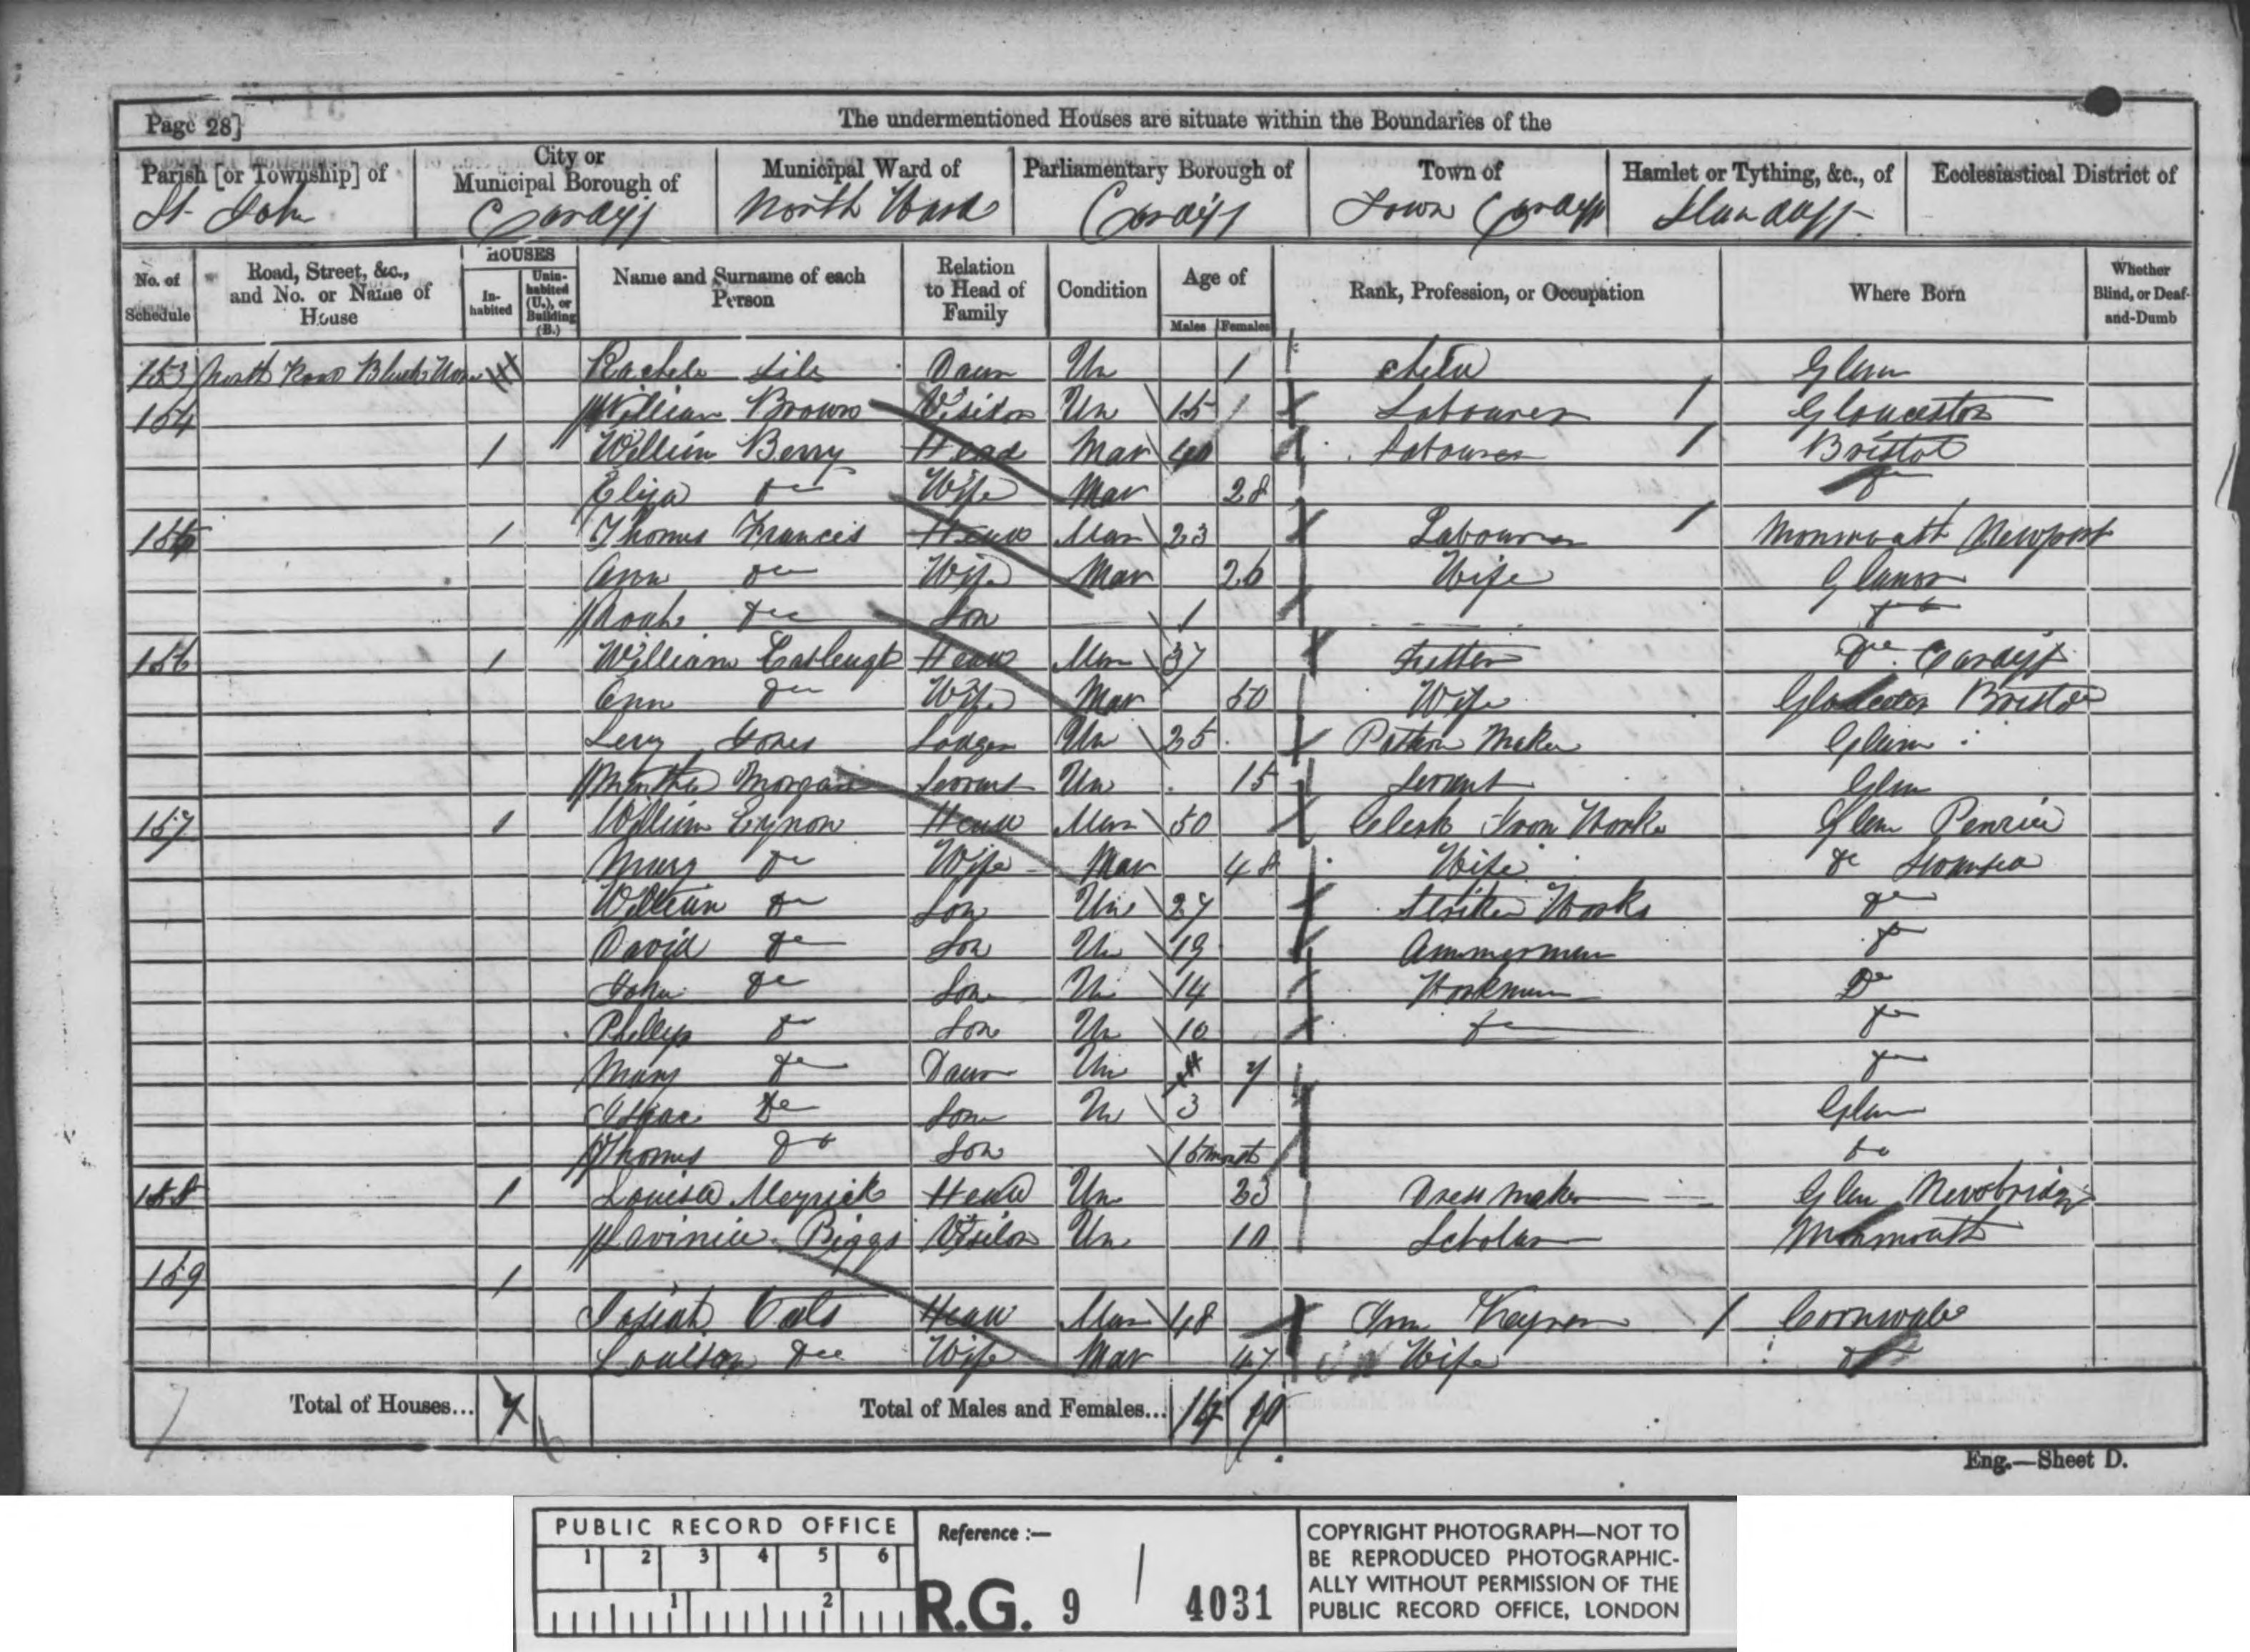 Page 28]
The undermentioned Houses are situate within the Boundaries of the
Parish [or Township] of
St. John
City or Municipal Borough of
Cardiff
Municipal Ward of
North Ward
Parliamentary Borough of
Cardiff
Town of
Town Cardiff
Hamlet or Tything, &c., of
Llandaff
Ecclesiastical District of
No. of Schedule
Road, Street, &c., and No. or Name of House
HOUSES
In-habited
Unin-habited (U.), or Building (B.)
Name and Surname of each Person
Relation to Head of Family
Condition
Age of
Males Females
Rank, Profession, or Occupation
Where Born
Whether Blind, or Deaf-and-Dumb
153 North Road Daur Un 1 Glam
154 William Brown Visitor Un 15 Labourer Gloucester
1 William Berry Head Mar 40 Labourer Bristol
Eliza do Wife Mar 28 do
155 1 Thomas Francis Head Mar 23 Labourer Monmouth Newport
Ann do Wife Mar 26 Wife Glamor
Noah do Son 1 do
156 1 William Head Mar 37 Fitter Do Cardiff
Ann do Wife Mar 50 Wife Bristol
Levy Jones Lodger Un 25 Pattern Maker Glam
Martha Morgan Servant Un 15 Servant Glam
157 1 William Eynon Head Mar 50 Clerk Iron Works Glam
Mary do Wife Mar 48 Wife do Swansea
William do Son Un 27 Striker Works do
David do Son Un 19 do
John do Son Un 14 Workman Do
Phillip do Son Un 10 do do
Mary do Daur Un 7 do
Isaac Do Son Un 3 Glam
Thomas Do Son do
158 1 Louisa Meyrick Head Un 23 Dress maker Glam Newbridge
Lavinia Biggs Visitor Un 10 Scholar Monmouth
159 1
Josiah Head Mar 48 Cornwall
do Wife Mar 47 Wife do
Total of Houses...
7
Total of Males and Females...
14
Eng.—Sheet D.
PUBLIC RECORD OFFICE
1 2 3 4 5 6
1 2
Reference :—
R.G. 9 / 4031
COPYRIGHT PHOTOGRAPH—NOT TO
BE REPRODUCED PHOTOGRAPHIC-
ALLY WITHOUT PERMISSION OF THE
PUBLIC RECORD OFFICE, LONDON